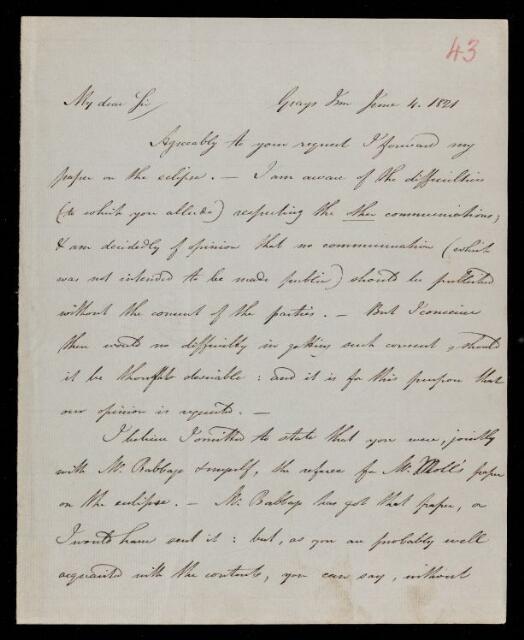 43
My dear Sir, Grays Inn June 4. 1821
Agreeably to your request I forward my
paper on the eclipse. — I am aware of the difficulties
(to which you allude) respecting the other communications;
& am decidedly of opinion that no communication (which
was not intended to be made public) should be published
without the consent of the parties. — But I conceive
there would no difficulty in getting such consent, should
it be thought desirable : and it is for this purpose that
our opinion is requested. —
I believe I omitted to state that you were, jointly
with Mr. Babbage & myself, the referee for Mr. Moll's paper
on the eclipse. — Mr. Babbage has got that paper, or
I would have sent it : but, as you are probably well
acquainted with the contents, you can say, without